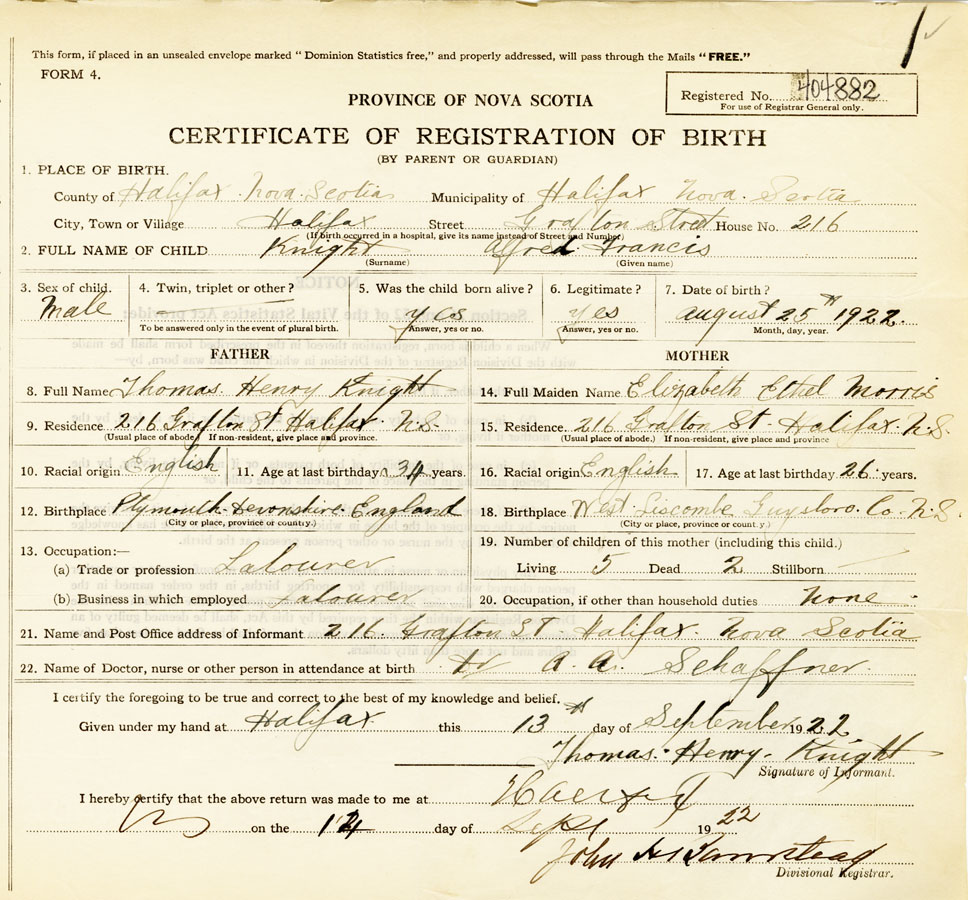 This form, if placed in an unsealed envelope marked "Dominion Statistics free," and properly addressed, will pass through the Mails "FREE."
FORM 4.
Registered No. 404882
For use of Registrar General only.
PROVINCE OF NOVA SCOTIA
CERTIFICATE OF REGISTRATION OF BIRTH
(BY PARENT OR GUARDIAN)
1. PLACE OF BIRTH.
County of Halifax Nova Scotia Municipality of Halifax Nova Scotia
City, Town or Village Halifax Street Grafton Street House No. 216
(If birth occurred in a hospital, give its name instead of Street and Number)
2. FULL NAME OF CHILD Knight Alfred Francis
(Surname) (Given name)
3. Sex of child. 4. Twin, triplet or other? 5. Was the child born alive? 6. Legitimate? 7. Date of birth?
Male yes yes August 25th 1922.
To be answered only in the event of plural birth. Answer, yes or no. Answer, yes or no. Month, day, year.
FATHER MOTHER
8. Full Name Thomas Henry Knight 14. Full Maiden Name Elizabeth Ethel Morris
9. Residence 216 Grafton St Halifax N.S. 15. Residence 216 Grafton St Halifax N.S.
(Usual place of abode) If non-resident, give place and province. (Usual place of abode.) If non-resident, give place and province
10. Racial origin English 11. Age at last birthday 34 years. 16. Racial origin English 17. Age at last birthday 26 years.
12. Birthplace Plymouth Devonshire England 18. Birthplace West Liscombe Guysboro Co. N.S.
(City or place, province or country.) (City or place, province or country.)
19. Number of children of this mother (including this child.)
13. Occupation:—
(a) Trade or profession Labourer Living 5 Dead 2 Stillborn
(b) Business in which employed Labourer 20. Occupation, if other than household duties None
21. Name and Post Office address of Informant 216 Grafton St Halifax Nova Scotia
22. Name of Doctor, nurse or other person in attendance at birth Dr A. A. Schaffner
I certify the foregoing to be true and correct to the best of my knowledge and belief.
Given under my hand at Halifax this 13th day of September 1922
Thomas Henry Knight
Signature of Informant.
I hereby certify that the above return was made to me at Halifax
on the 14 day of Sept 1922
John
Divisional Registrar.